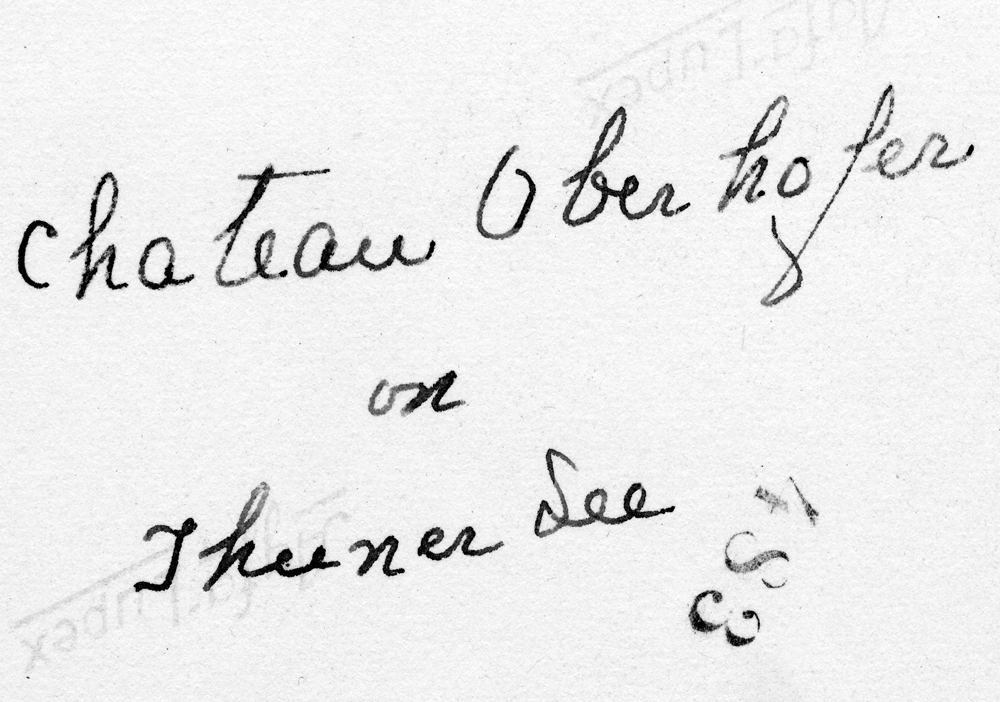 Chateau Oberhofer
on
Thuner See